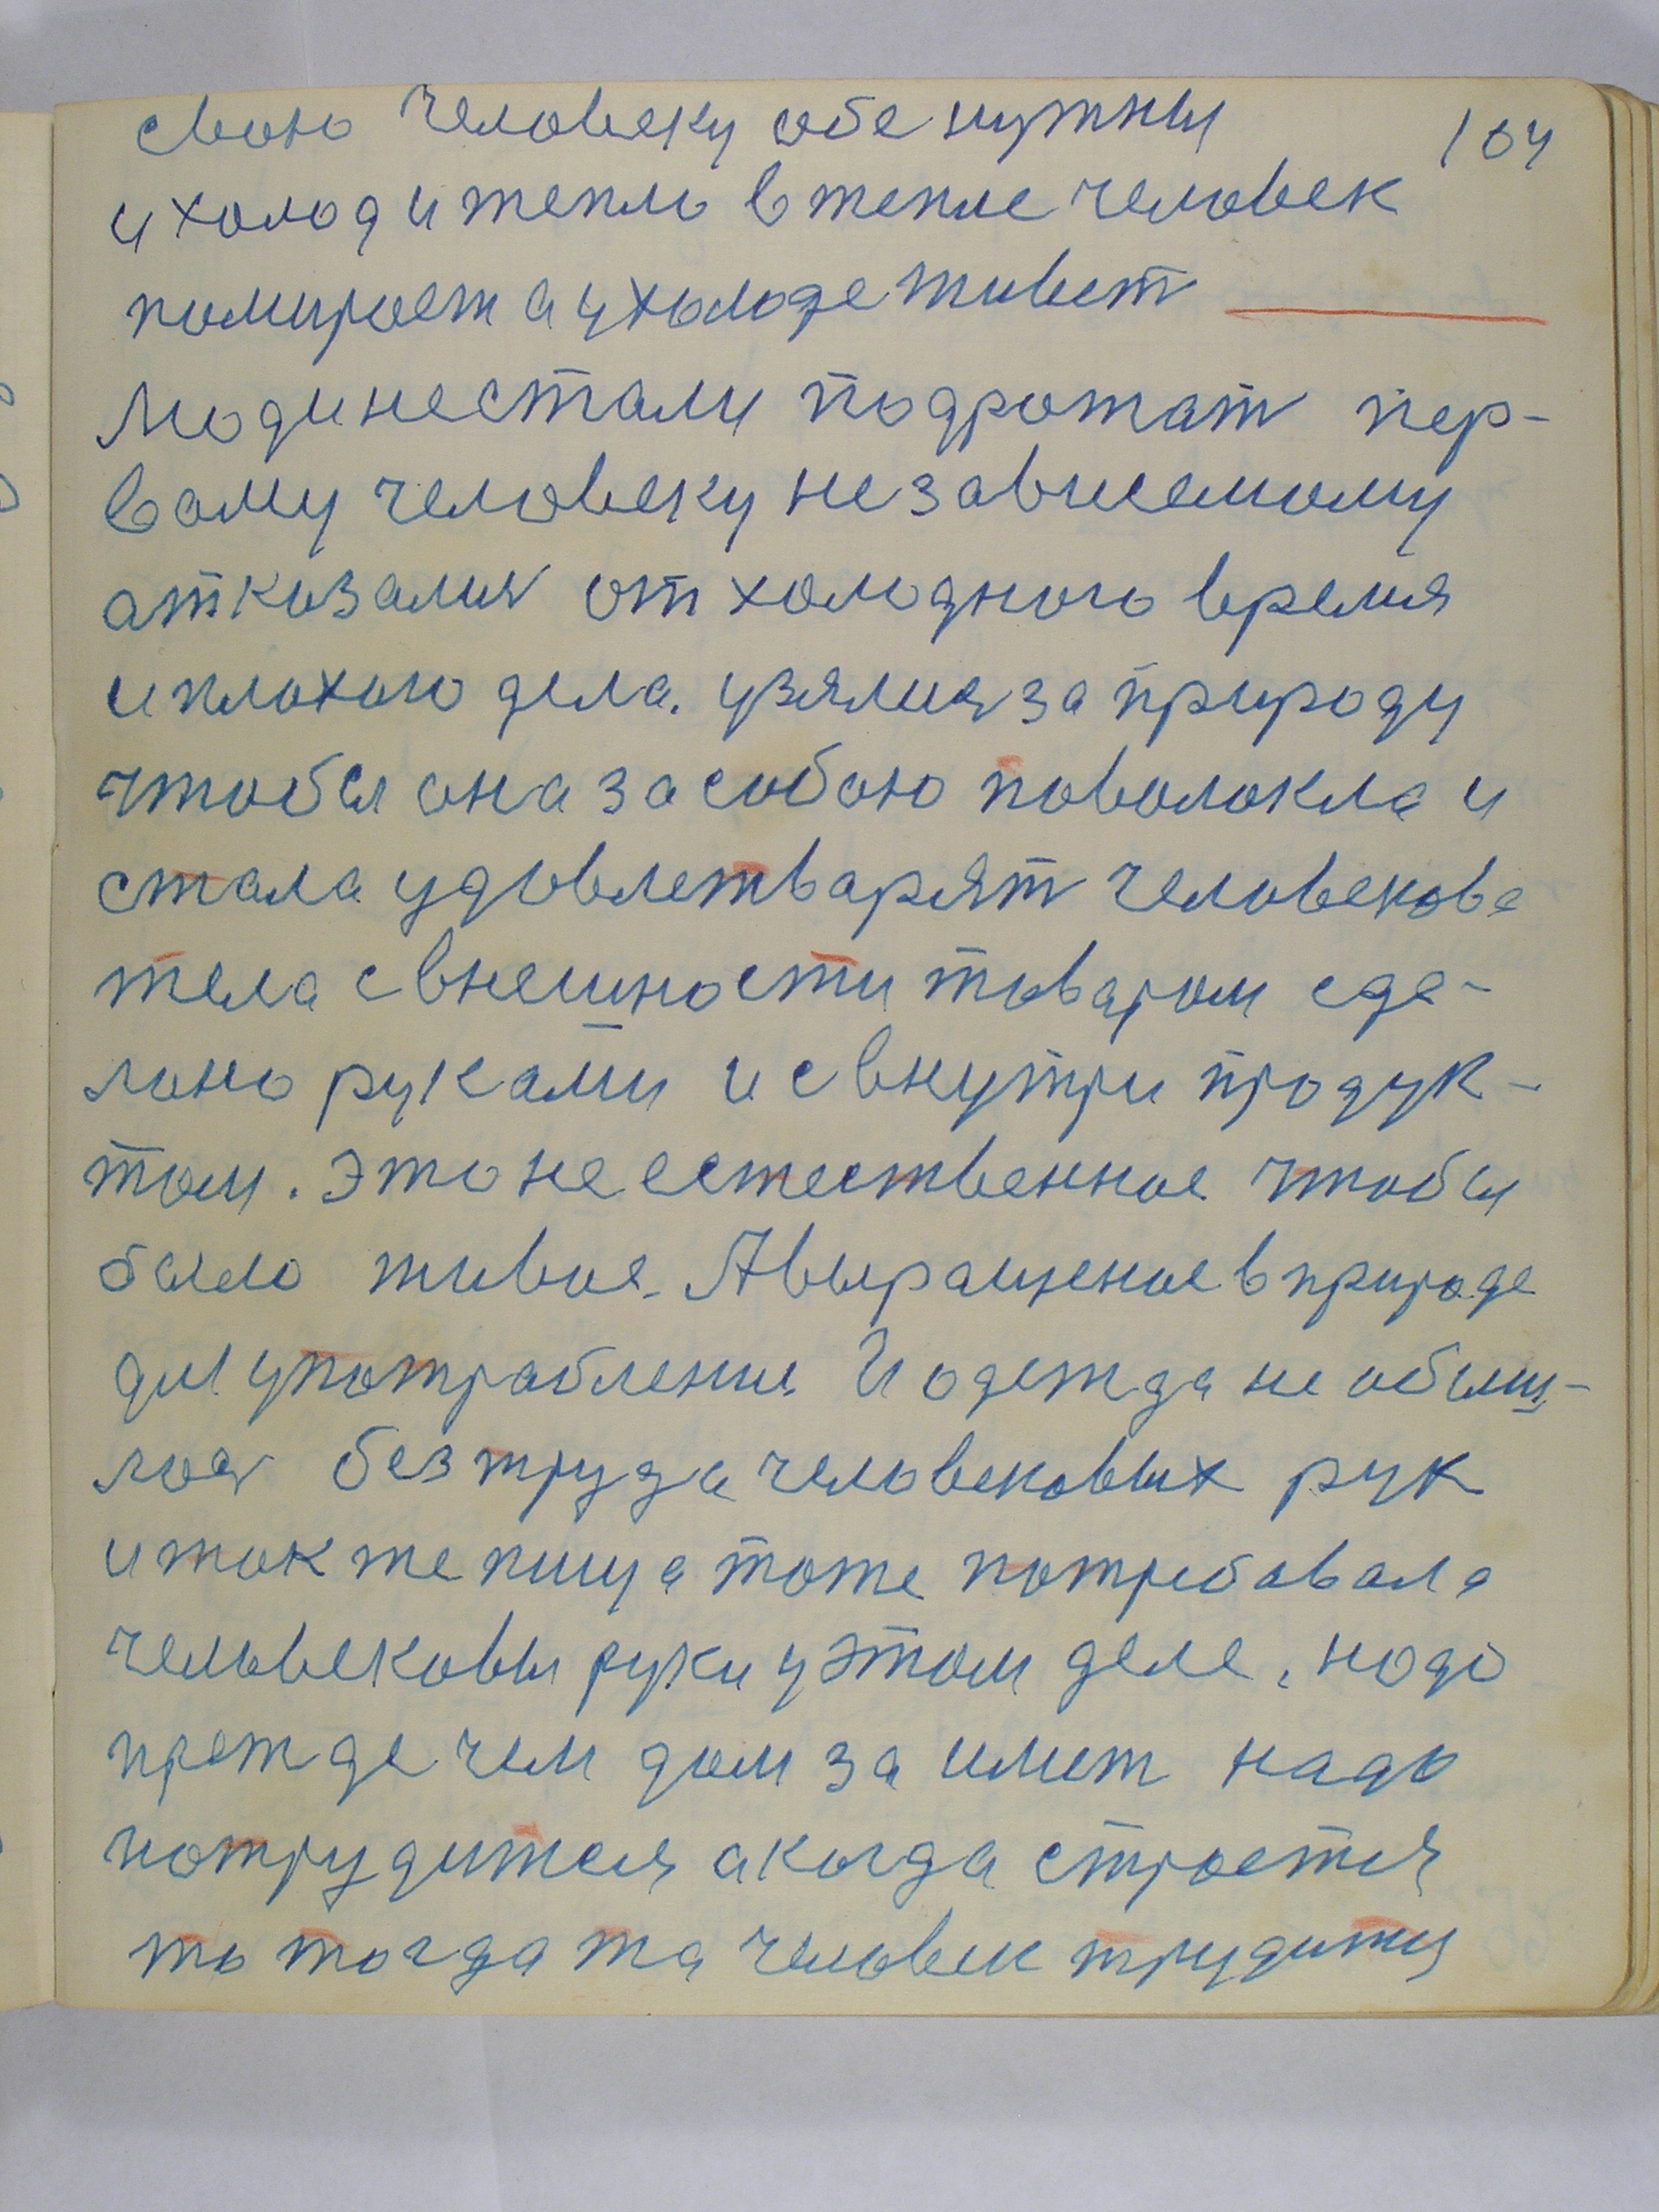 свою человеку обе нужны 104
и холод и тепло в тепле человек
помирает а у холоде живет
Люди нестали подрожат пер-
вому человеку независемому
отказалися от холодного время
и плохого дела. узялися за природу
чтобы она засобою поволокла и
стала удовлетварят человекова
тела с внешности товаром сде-
лано руками и с внутри продук-
том. это не естественное чтобы
было живое. А выращеное в природе
для употрабления. И одежда не обошш-
лося без труда человековых рук
и так же пища тоже потребовала
человековы руки у этом деле. надо
прежде чем дом за имет надо
потрудится а когда строется
то тогда та человек трудится